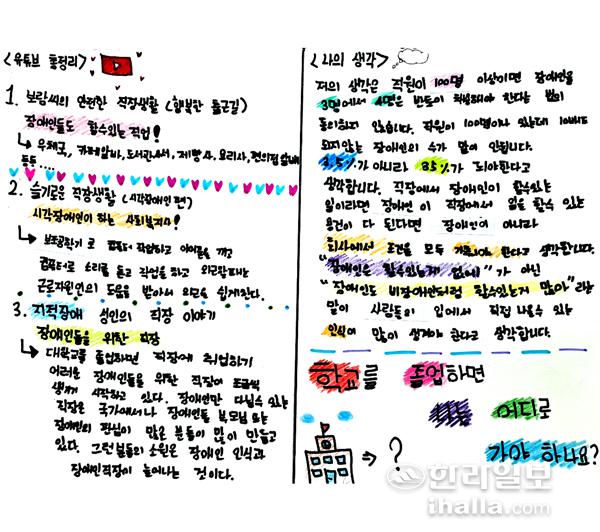 <유튜브 총정리>
1. 보람씨의 안전한 직장생활 (행복한 출근길)
장애인들도 할수있는 직업!
↳ 우체국, 카페알바, 도서관사서, 제빵사, 요리사, 편의점 알바
등등 ....
2. 슬기로운 직장생활 (시각장애인 편)
시각장애인이 하는 사회복지사!
↳ 보조공학기로 컴퓨터 작업하고 이어폰을 끼고
컴퓨터로 소리를 듣고 작업을 하고 외근할때는
근로지원인의 도움을 받아서 외근을 쉽게한다.
3. 지적장애 성인의 직장 이야기
장애인들을 위한 직장
↳ 대학교를 졸업하면 직장에 취업하기
어려운 장애인들을 위한 직장이 조금씩
생기기 시작하고 있다. 장애인만 다닐수 있는
직장은 국가에서나 장애인을 부모님 또는
장애인의 관심이 많은 분들이 많이 만들고
있다. 그런 분들의 소원은 장애인 인식과
장애인직장이 늘어나는 것이다.
<나의 생각>
저의 생각은 직원이 100명 이상이면 장애인을
3명에서 4명은 반드시 채용해야 한다는 법이
동의하지 않습니다. 직원이 100명이나 있는데 10%도
되지않는 장애인의 수가 말이 안됩니다.
3.5%가 아니라 85%가 되야한다고
생각합니다. 직장에서 장애인이 할수있는
일이라면 장애인 이 직장에서 일을 할수 있는
용건이 다 된다면 장애인이 아니라
회사에서 조건을 모두 한다고 생각합니다.
"장애인은 할수있는게 없어"가 아닌
"장애인도 비장애인처럼 할수있는게 많아"라는
말이 사람들의 입에서 직접 나올수 있는
인식이 많이 생겨야 한다고 생각합니다.
학교를 졸업하면
나는 어디로
⇒ ? 가야 하나요?
한라일보
ihalla.com